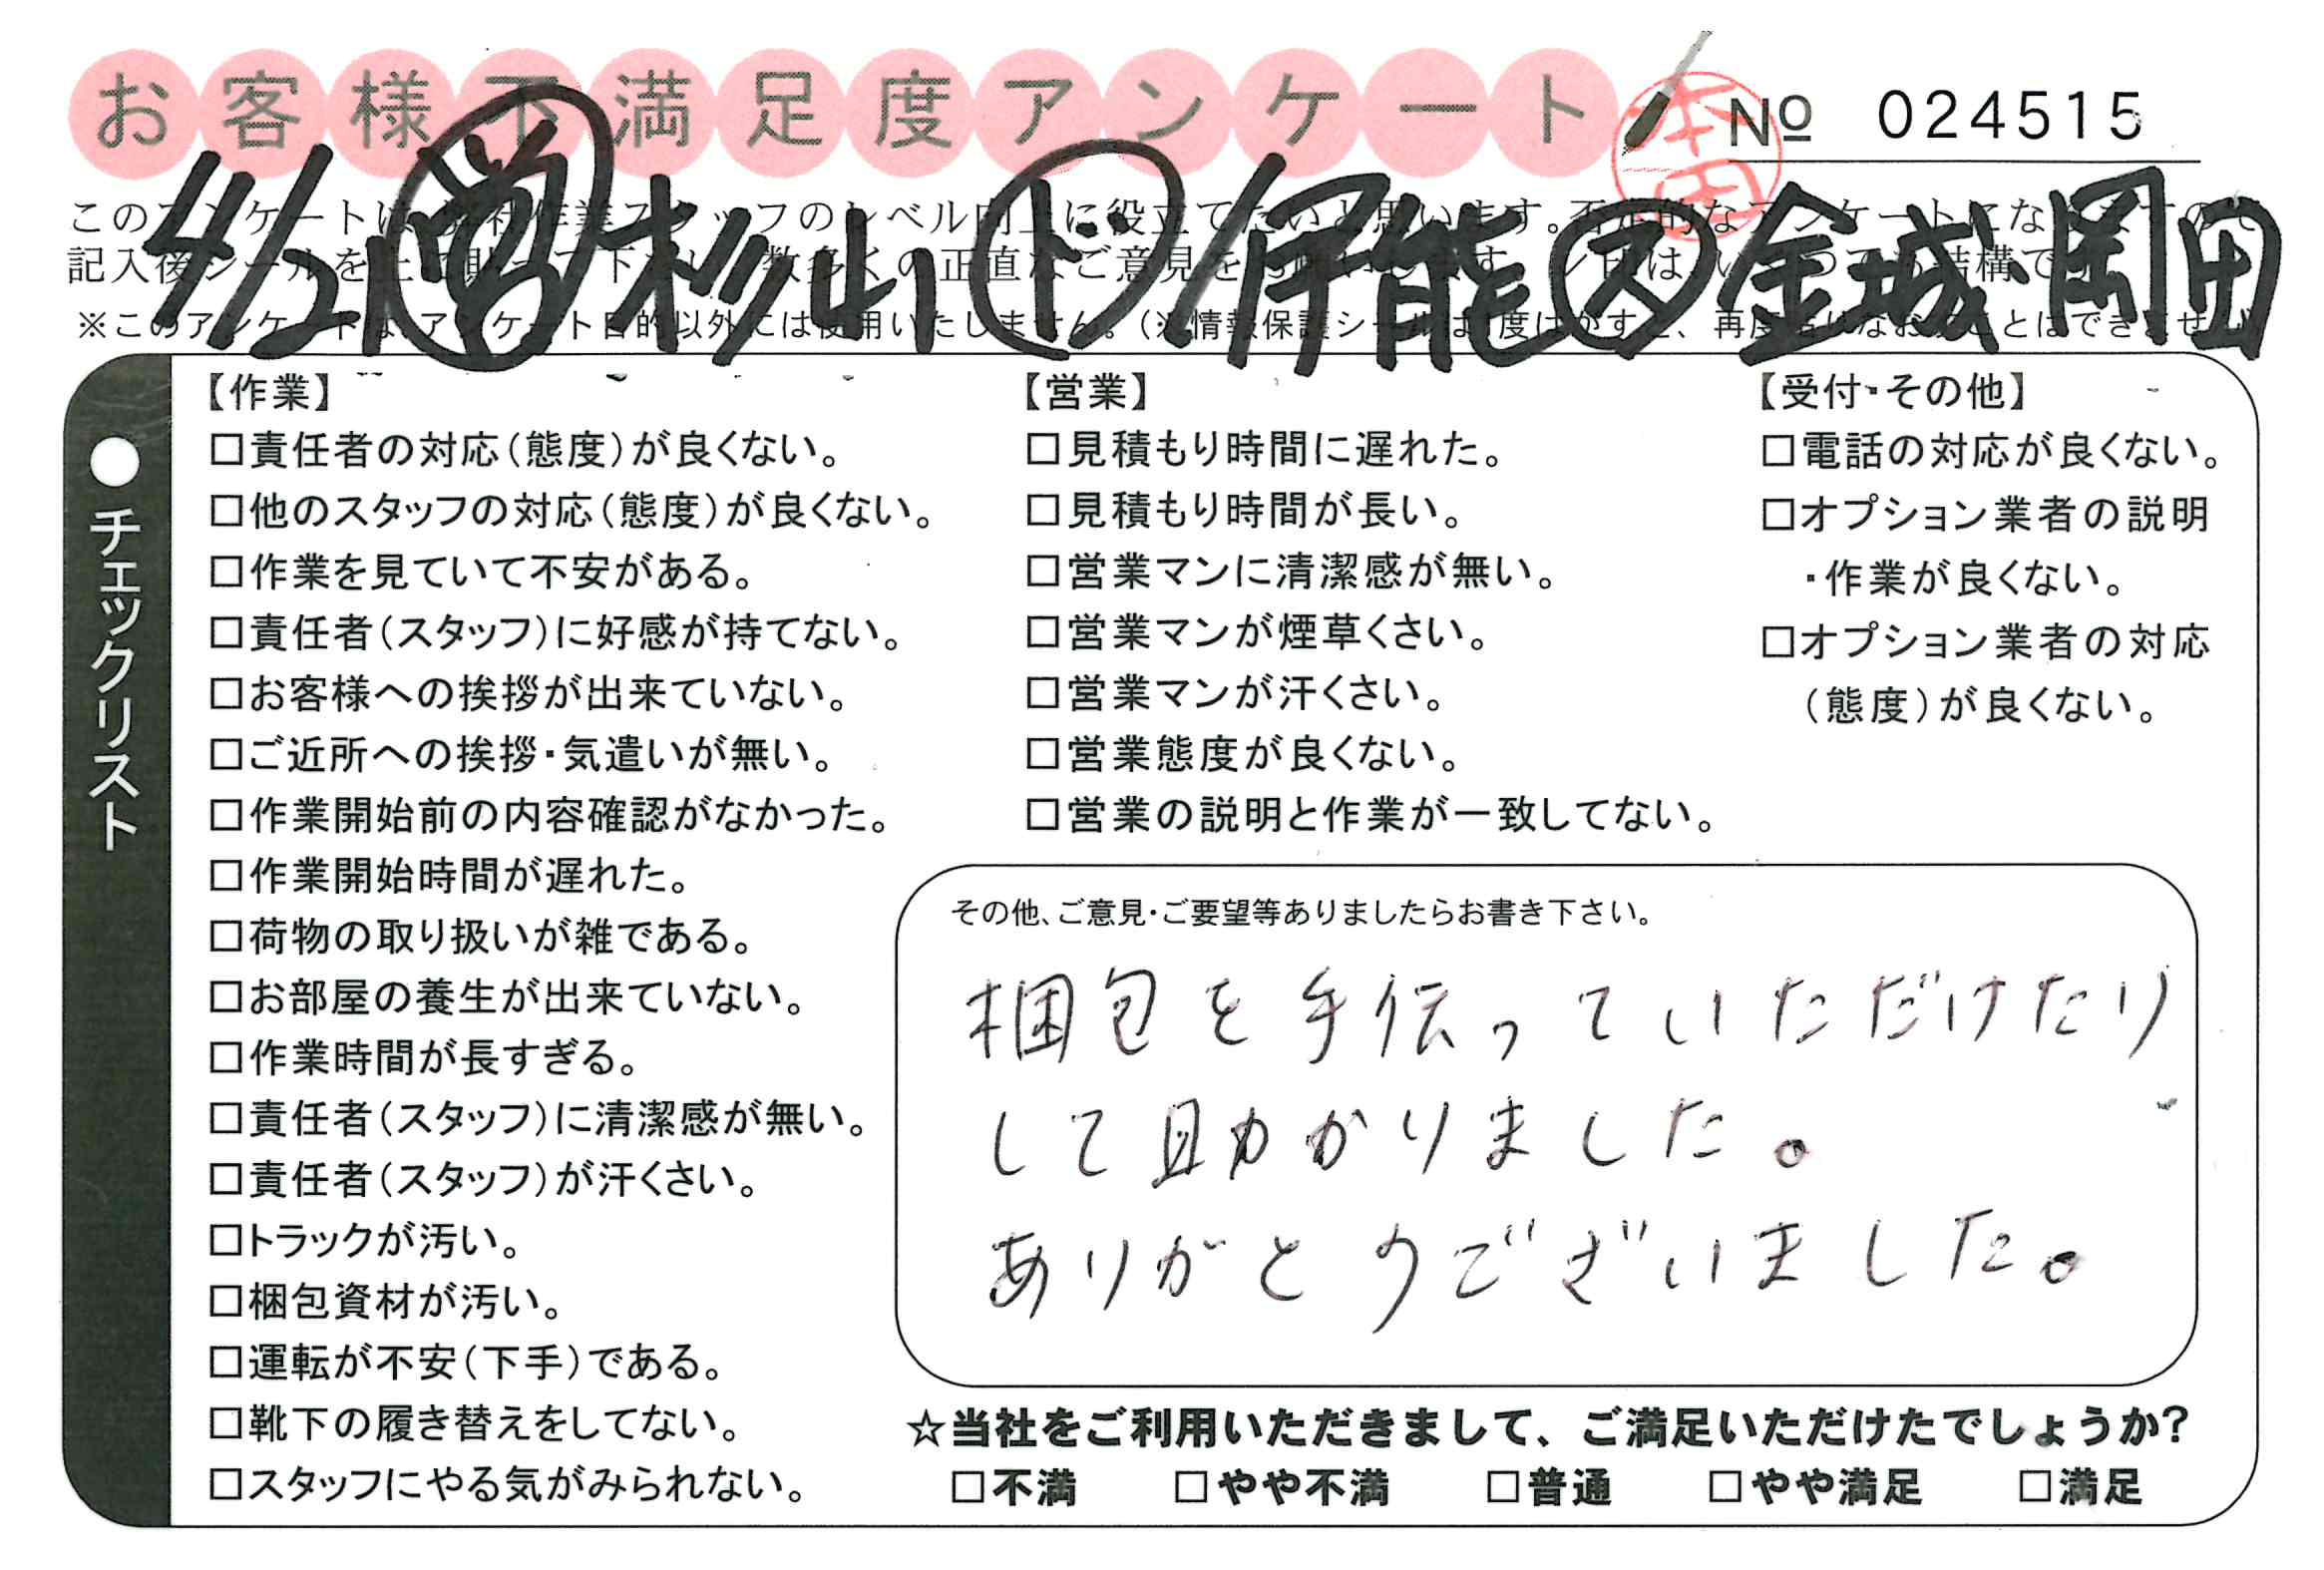 お客様不満足度アンケート
本田
№ 024515
4/21 営 杉山 ド 伊能 ス 金城・岡田
※このアンケートは、アンケート目的以外には使用いたしません。
チェックリスト
【作業】
□責任者の対応(態度)が良くない。
□他のスタッフの対応(態度)が良くない。
□作業を見ていて不安がある。
□責任者(スタッフ)に好感が持てない。
□お客様への挨拶が出来ていない。
□ご近所への挨拶・気遣いが無い。
□作業開始前の内容確認がなかった。
□作業開始時間が遅れた。
□荷物の取り扱いが雑である。
□お部屋の養生が出来ていない。
□作業時間が長すぎる。
□責任者(スタッフ)に清潔感が無い。
□責任者(スタッフ)が汗くさい。
□トラックが汚い。
□梱包資材が汚い。
□運転が不安(下手)である。
□靴下の履き替えをしてない。
□スタッフにやる気がみられない。
【営業】
□見積もり時間に遅れた。
□見積もり時間が長い。
□営業マンに清潔感が無い。
□営業マンが煙草くさい。
□営業マンが汗くさい。
□営業態度が良くない。
□営業の説明と作業が一致してない。
【受付・その他】
□電話の対応が良くない。
□オプション業者の説明
・作業が良くない。
□オプション業者の対応
(態度)が良くない。
その他、ご意見・ご要望等ありましたらお書き下さい。
梱包を手伝っていただけたり
して助かりました。
ありがとうございました。
☆当社をご利用いただきまして、ご満足いただけたでしょうか?
□不満 □やや不満 □普通 □やや満足 □満足